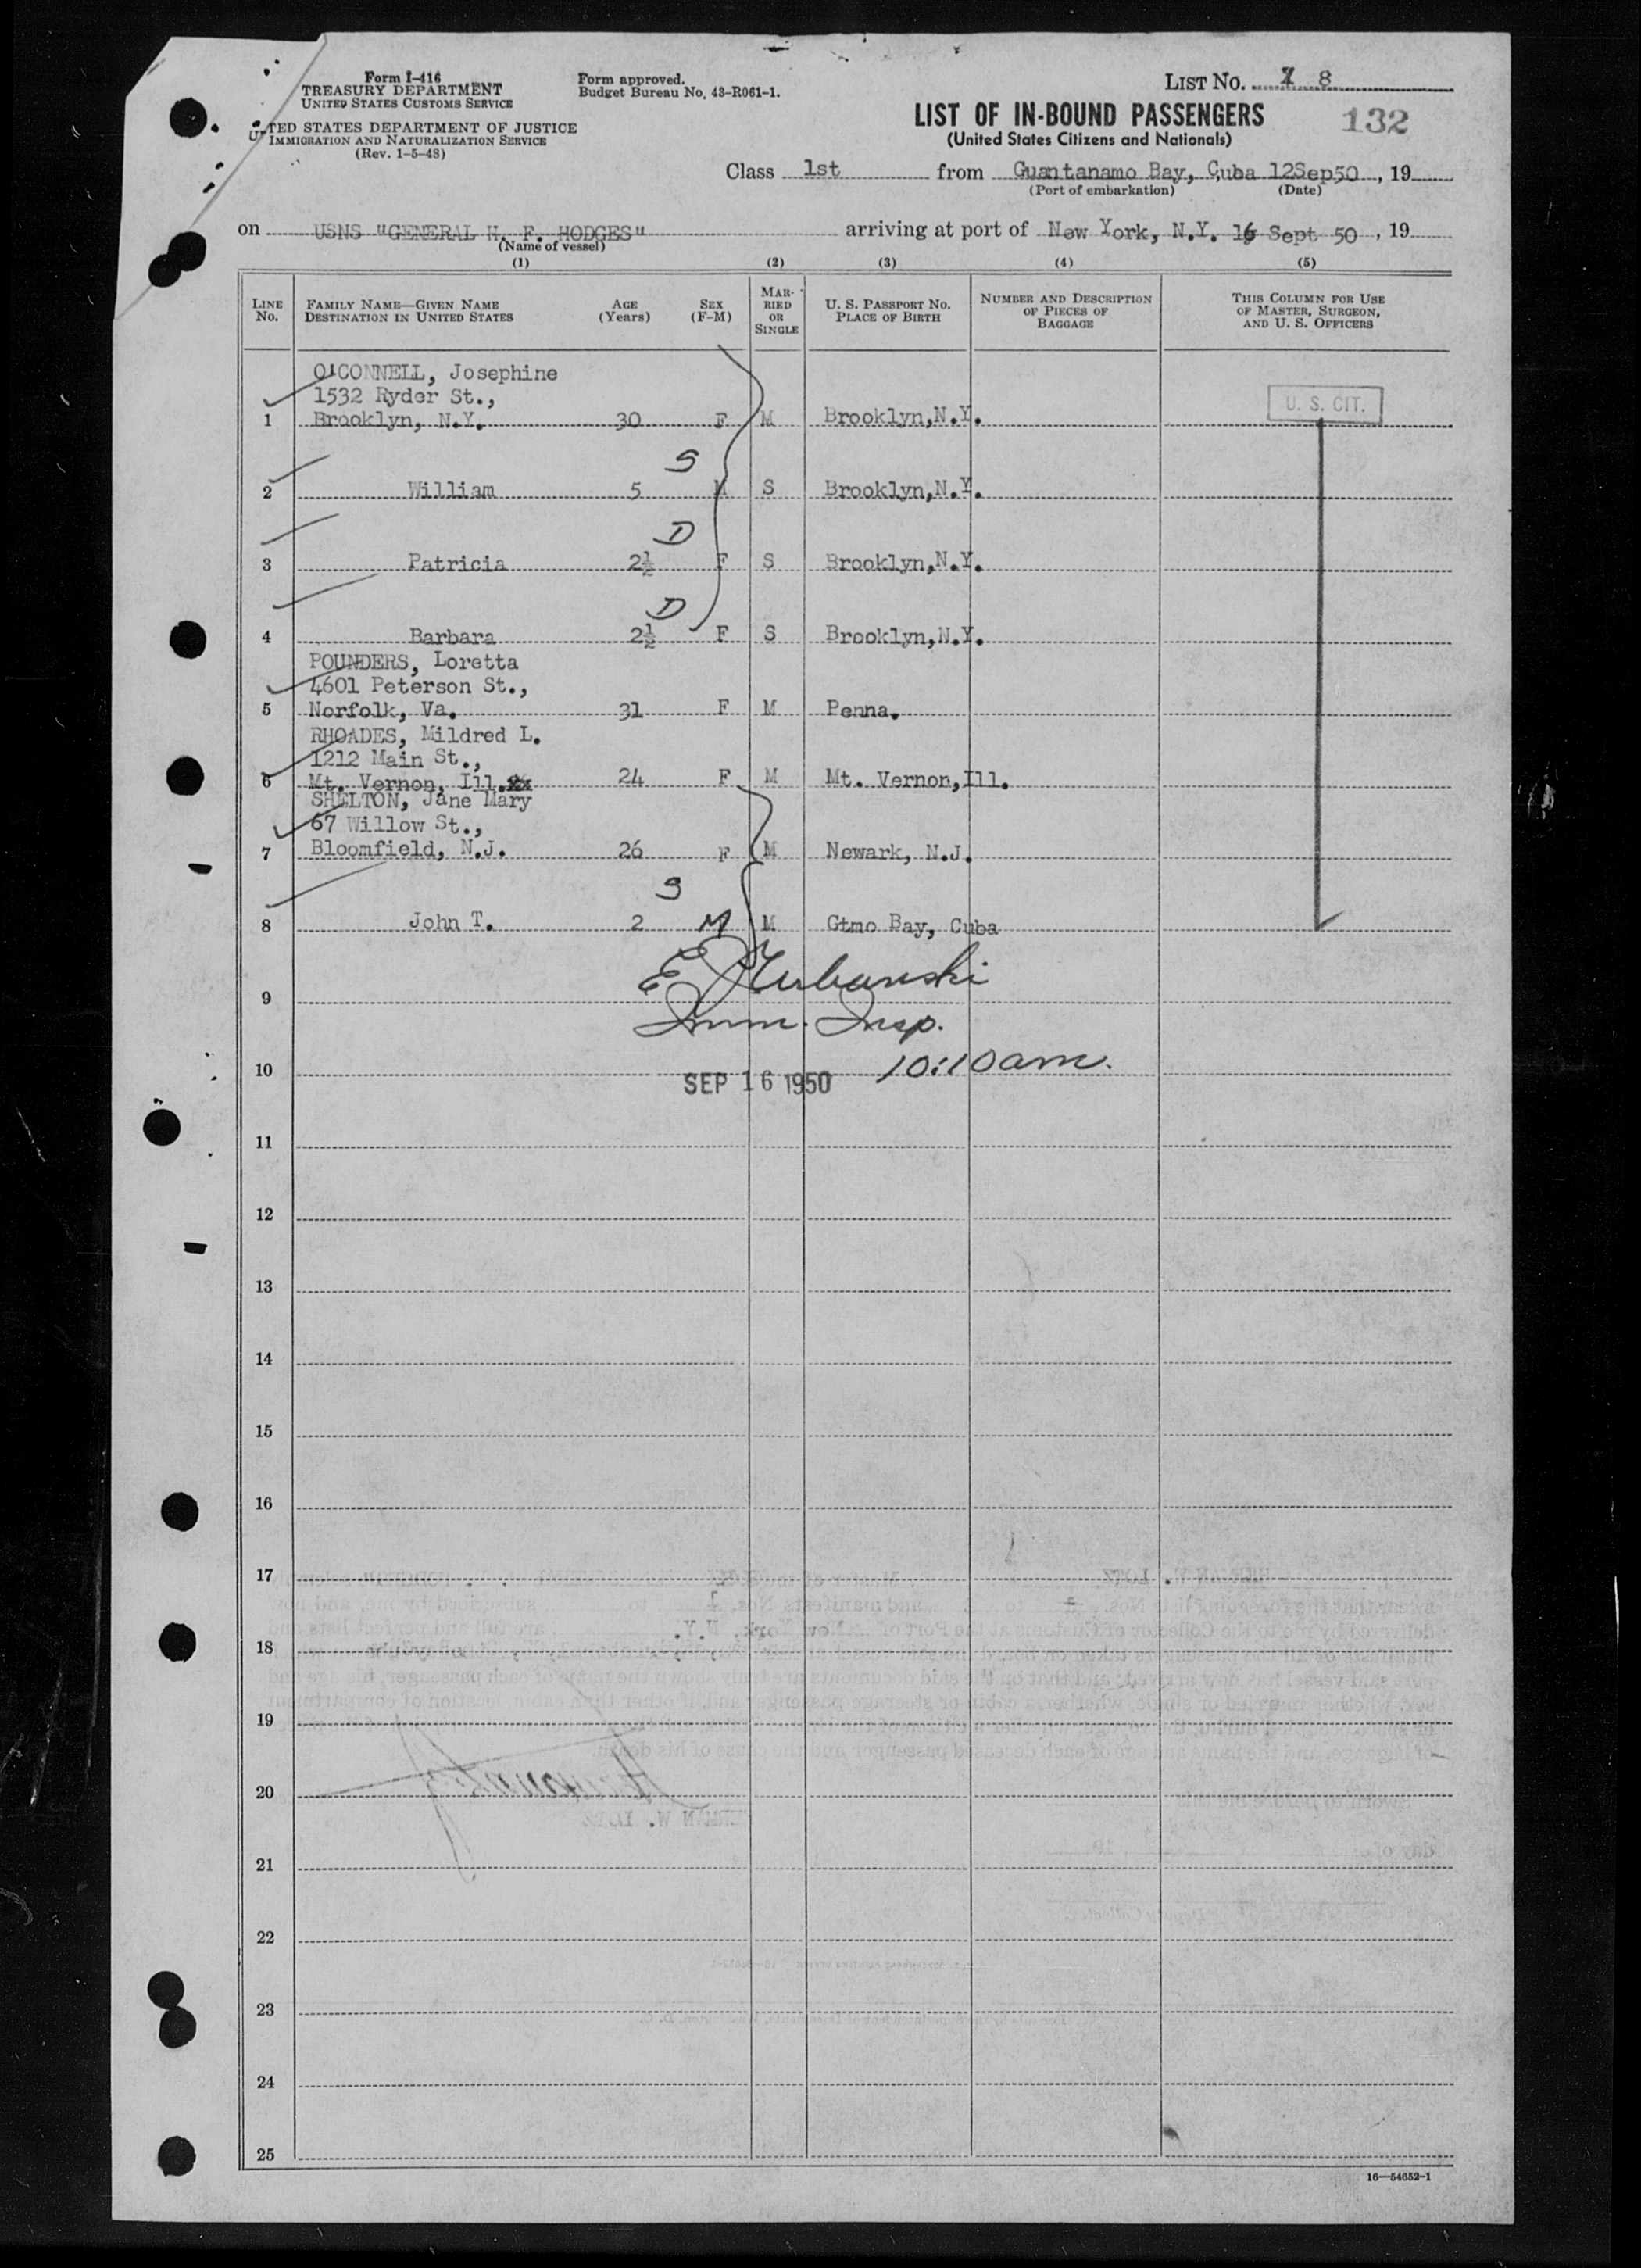 Form I-416
TREASURY DEPARTMENT
UNITED STATES CUSTOMS SERVICE
UNITED STATES DEPARTMENT OF JUSTICE
IMMIGRATION AND NATURALIZATION SERVICE
(Rev. 1-5-48)
Form approved.
Budget Bureau No. 43-R061-1.
LIST NO. 7 8
LIST OF IN-BOUND PASSENGERS
132
(United States Citizens and Nationals)
Class 1st from Guantanamo Bay, Cuba 12Sep50, 19
(Port of embarkation) (Date)
on USNS "GENERAL H. F. HODGES" arriving at port of New York, N.Y. 16 Sept 50, 19
(Name of vessel)
(1) (2) (3) (4) (5)
LINE No.
FAMILY NAME—GIVEN NAME
DESTINATION IN UNITED STATES
AGE
(Years)
SEX
(F-M)
MAR-
RIED
OR
SINGLE
U. S. PASSPORT NO.
PLACE OF BIRTH
NUMBER AND DESCRIPTION
OF PIECES OF
BAGGAGE
THIS COLUMN FOR USE
OF MASTER, SURGEON,
AND U. S. OFFICERS
O'CONNELL, Josephine
1532 Ryder St.,
1 Brooklyn, N.Y. 30 F M Brooklyn,N.Y.
U. S. CIT.
S
2 William 5 M S Brooklyn,N.Y.
D
3 Patricia 2½ F S Brooklyn,N.Y.
D
4 Barbara 2½ F S Brooklyn,N.Y.
POUNDERS, Loretta
4601 Peterson St.,
5 Norfolk, Va. 31 F M Penna.
RHOADES, Mildred L.
1212 Main St.,
6 Mt. Vernon, Ill. 24 F M Mt. Vernon,Ill.
SHELTON, Jane Mary
67 Willow St.,
7 Bloomfield, N.J. 26 F M Newark, N.J.
S
8 John T. 2 M M Gtmo Bay, Cuba
E
9
Imm. Insp.
10 10:10am.
SEP 16 1950
11
12
13
14
15
16
17
18
19
20
21
22
23
24
25
16—54652-1